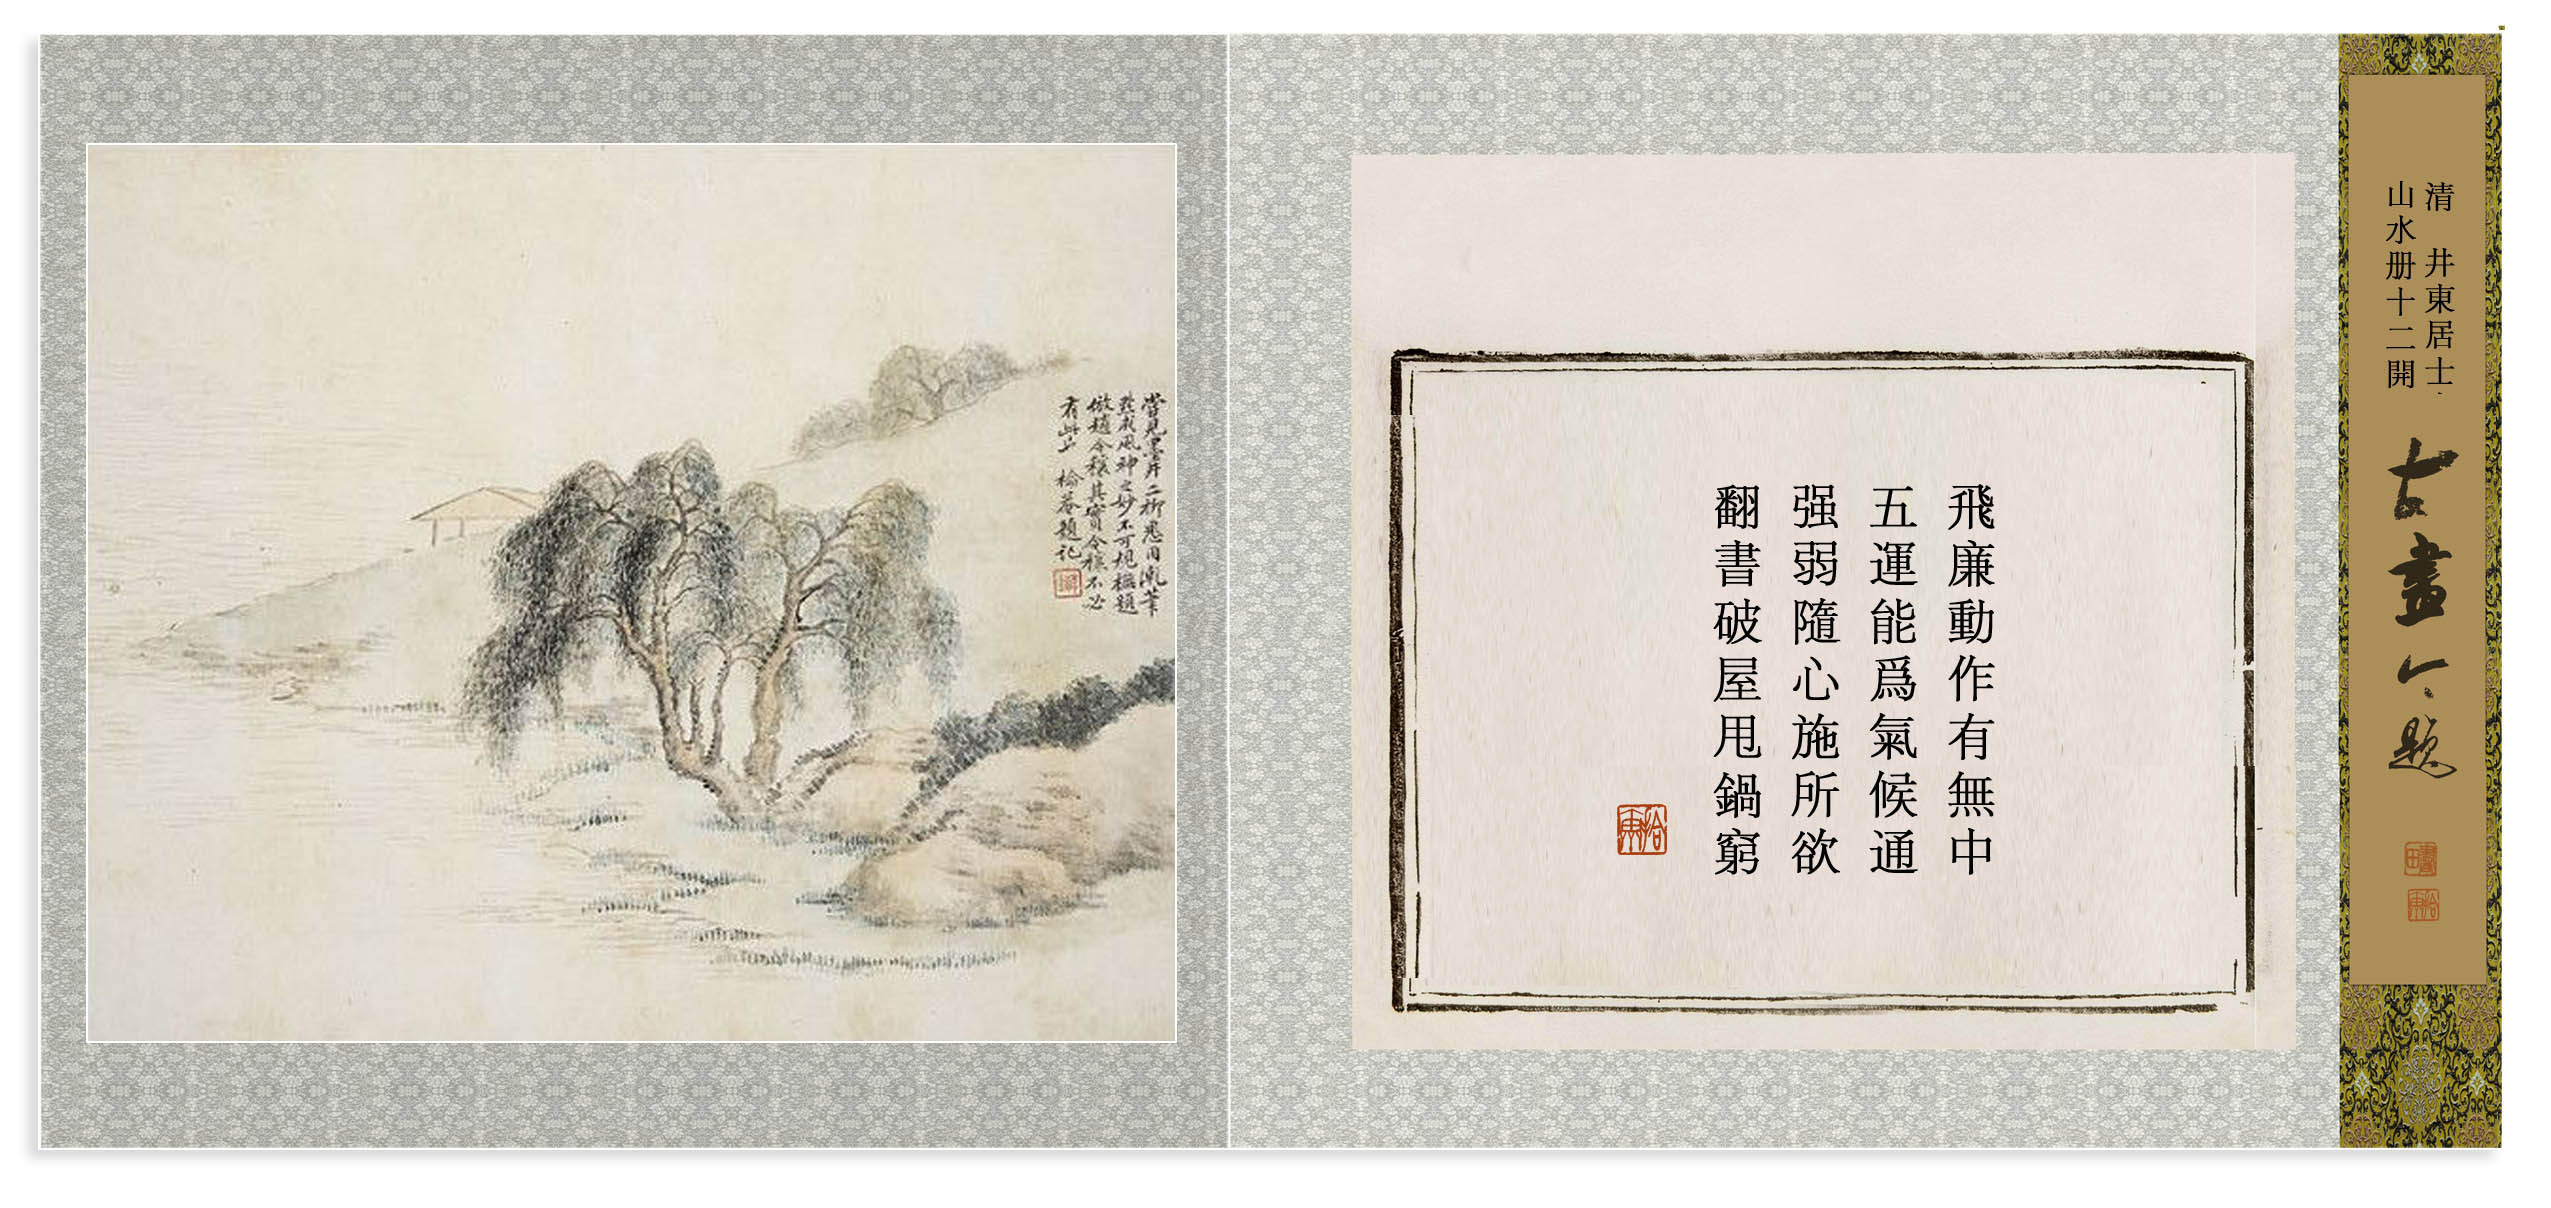 清 井東居士
山水册十二開
古畫今題
飛廉動作有無中
五運能爲氣候通
强弱隨心施所欲
翻書破屋甩鍋窮
嘗見雲房二楊悉用亂筆
點成風神之妙不可規橅題
倣趙令穰其實令穰不必
有此也 榆菴題記